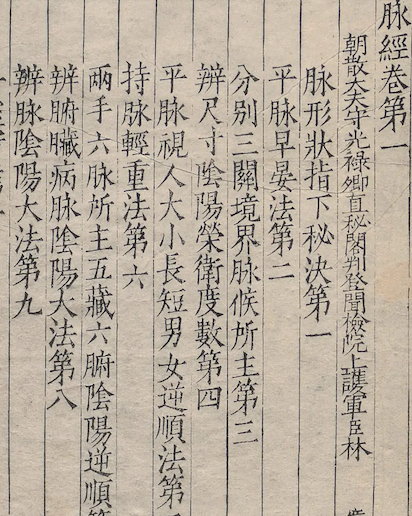 脉經卷第一
朝散大夫守光祿卿直秘閣判登聞檢院上護軍臣林
脉形狀指下秘決第一
平脉早晏法第二
分別三關境界脉候所主第三
辨尺寸陰陽榮衛度數第四
平脉視人大小長短男女逆順法第
持脉輕重法第六
兩手六脉所主五藏六腑陰陽逆順
辨腑臟病脉陰陽大法第八
辨脉陰陽大法第九